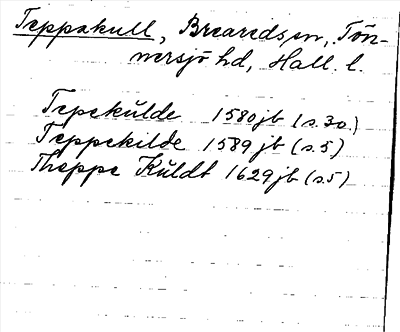 Teppakull, Breareds sn, Tön-
nersjö hd, Hall. l.
Tepekulde 1580 jb (s. 30)
Teppekilde 1589 jb (s. 5)
Theppe Kuldt 1629 jb (s. 5)